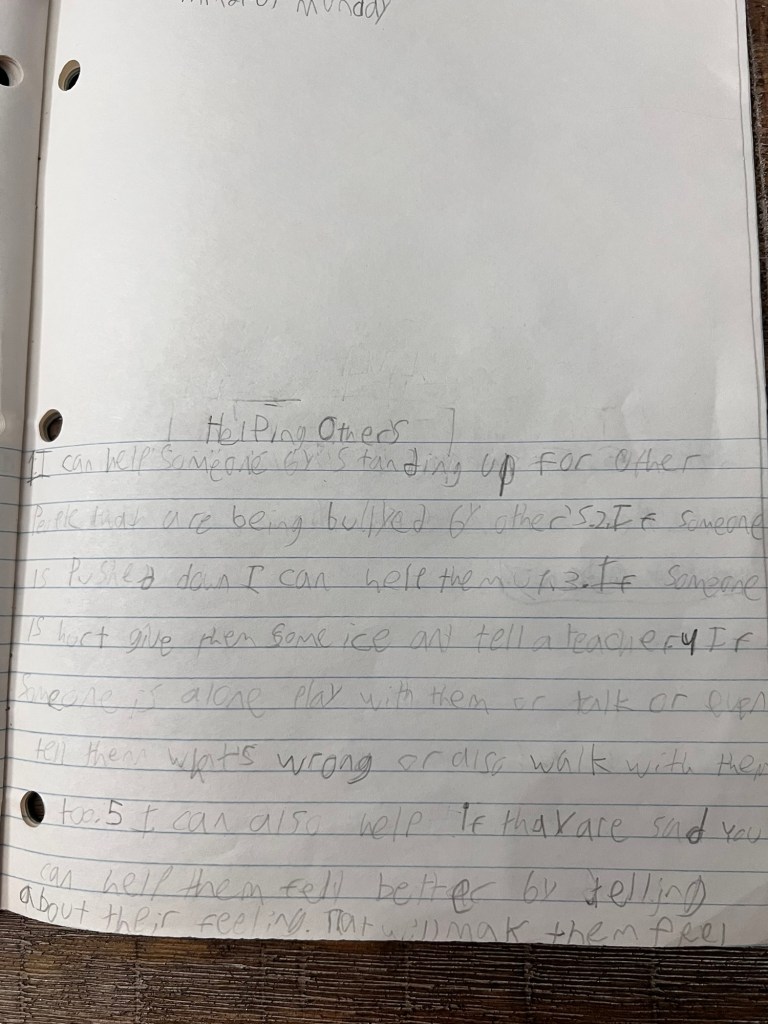 Monday
Helping Others
1 I can help someone by standing up for other
People that are being bullyed by other's.2.If someone
is Pushed down I can help them up.3.If someone
is hurt give them some ice and tell a teacher 4 If
Someone is alone play with them or talk or even
tell them what's wrong or also walk with them
too.5 I can also help if thay are sad you
can help them fell better by telling
about their feeling. That will mak them feel